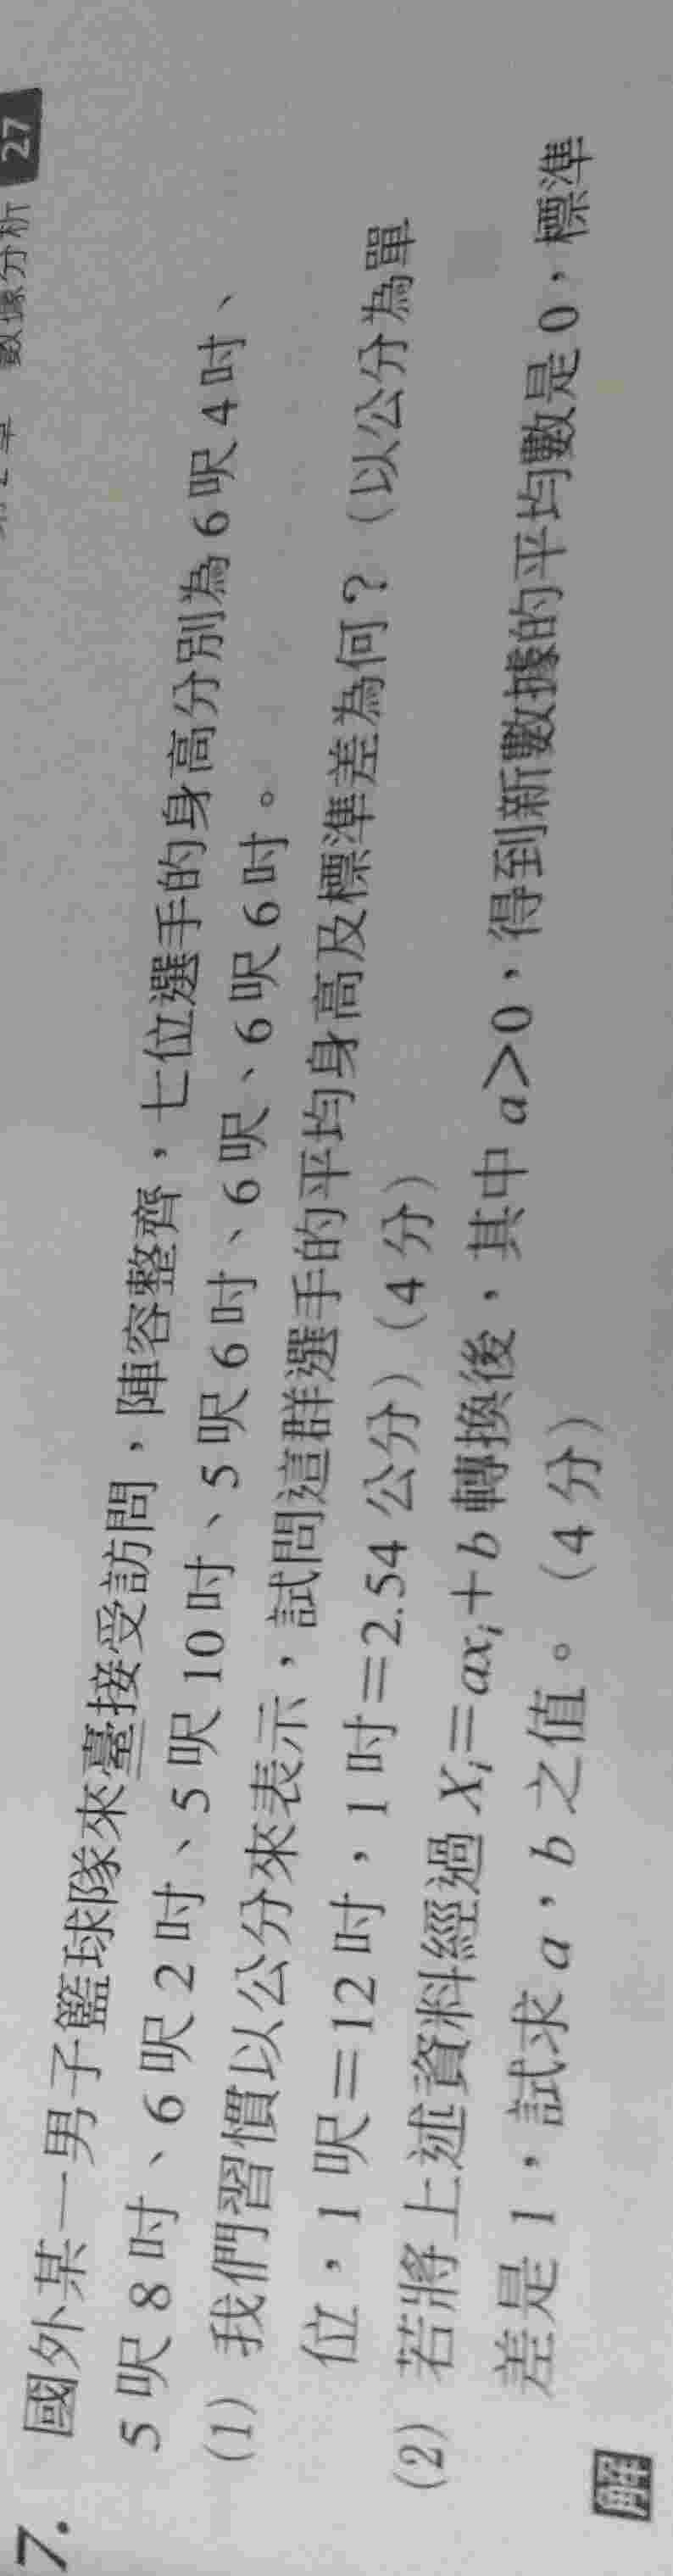 數據分析 27
7. 國外某一男子籃球隊來臺接受訪問，陣容整齊，七位選手的身高分別為 6 呎 4 吋、
5 呎 8 吋、6 呎 2 吋、5 呎 10 吋、5 呎 6 吋、6 呎、6 呎 6 吋。
(1) 我們習慣以公分來表示，試問這群選手的平均身高及標準差為何？（以公分為單
位，1 呎＝12 吋，1 吋＝2.54 公分）（4 分）
(2) 若將上述資料經過 Xᵢ＝axᵢ＋b 轉換後，其中 a＞0，得到新數據的平均數是 0，標準
差是 1，試求 a，b 之值。（4 分）
解